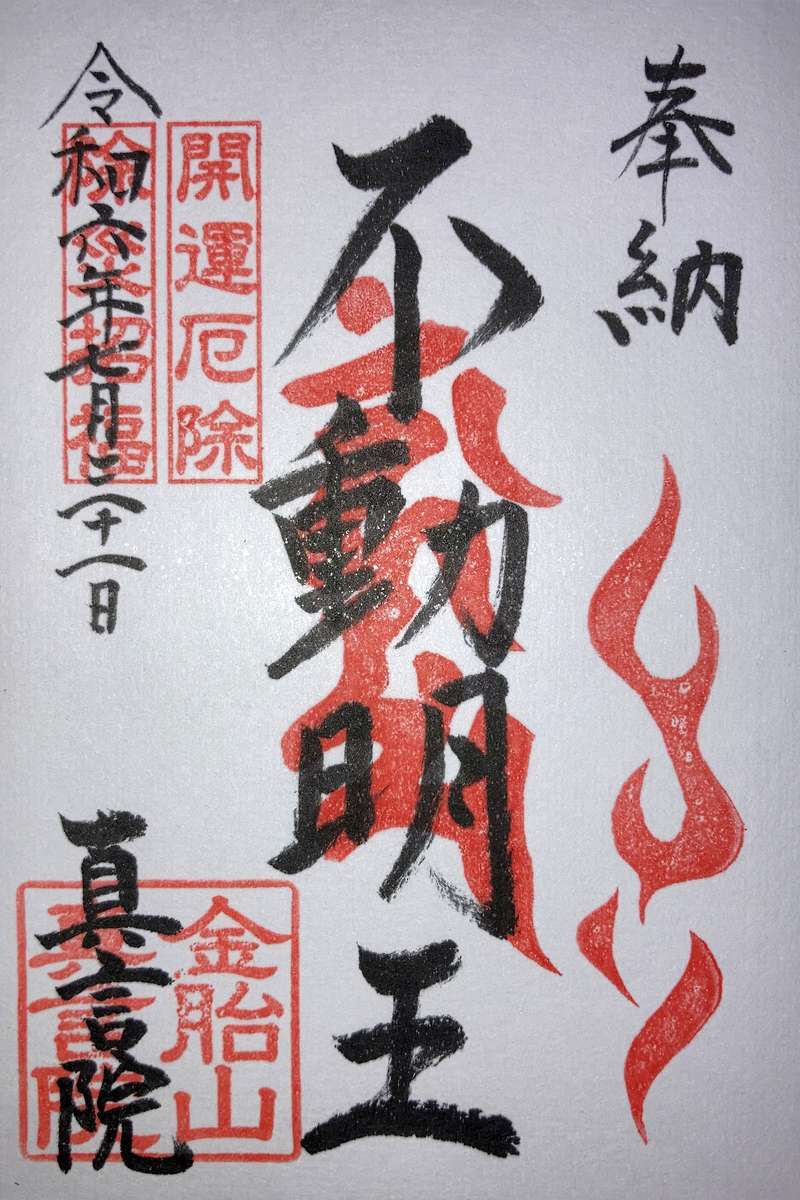 奉納
不動明王
開運厄除
招福
令和六年七月三十一日
金胎山
真言院
真言院